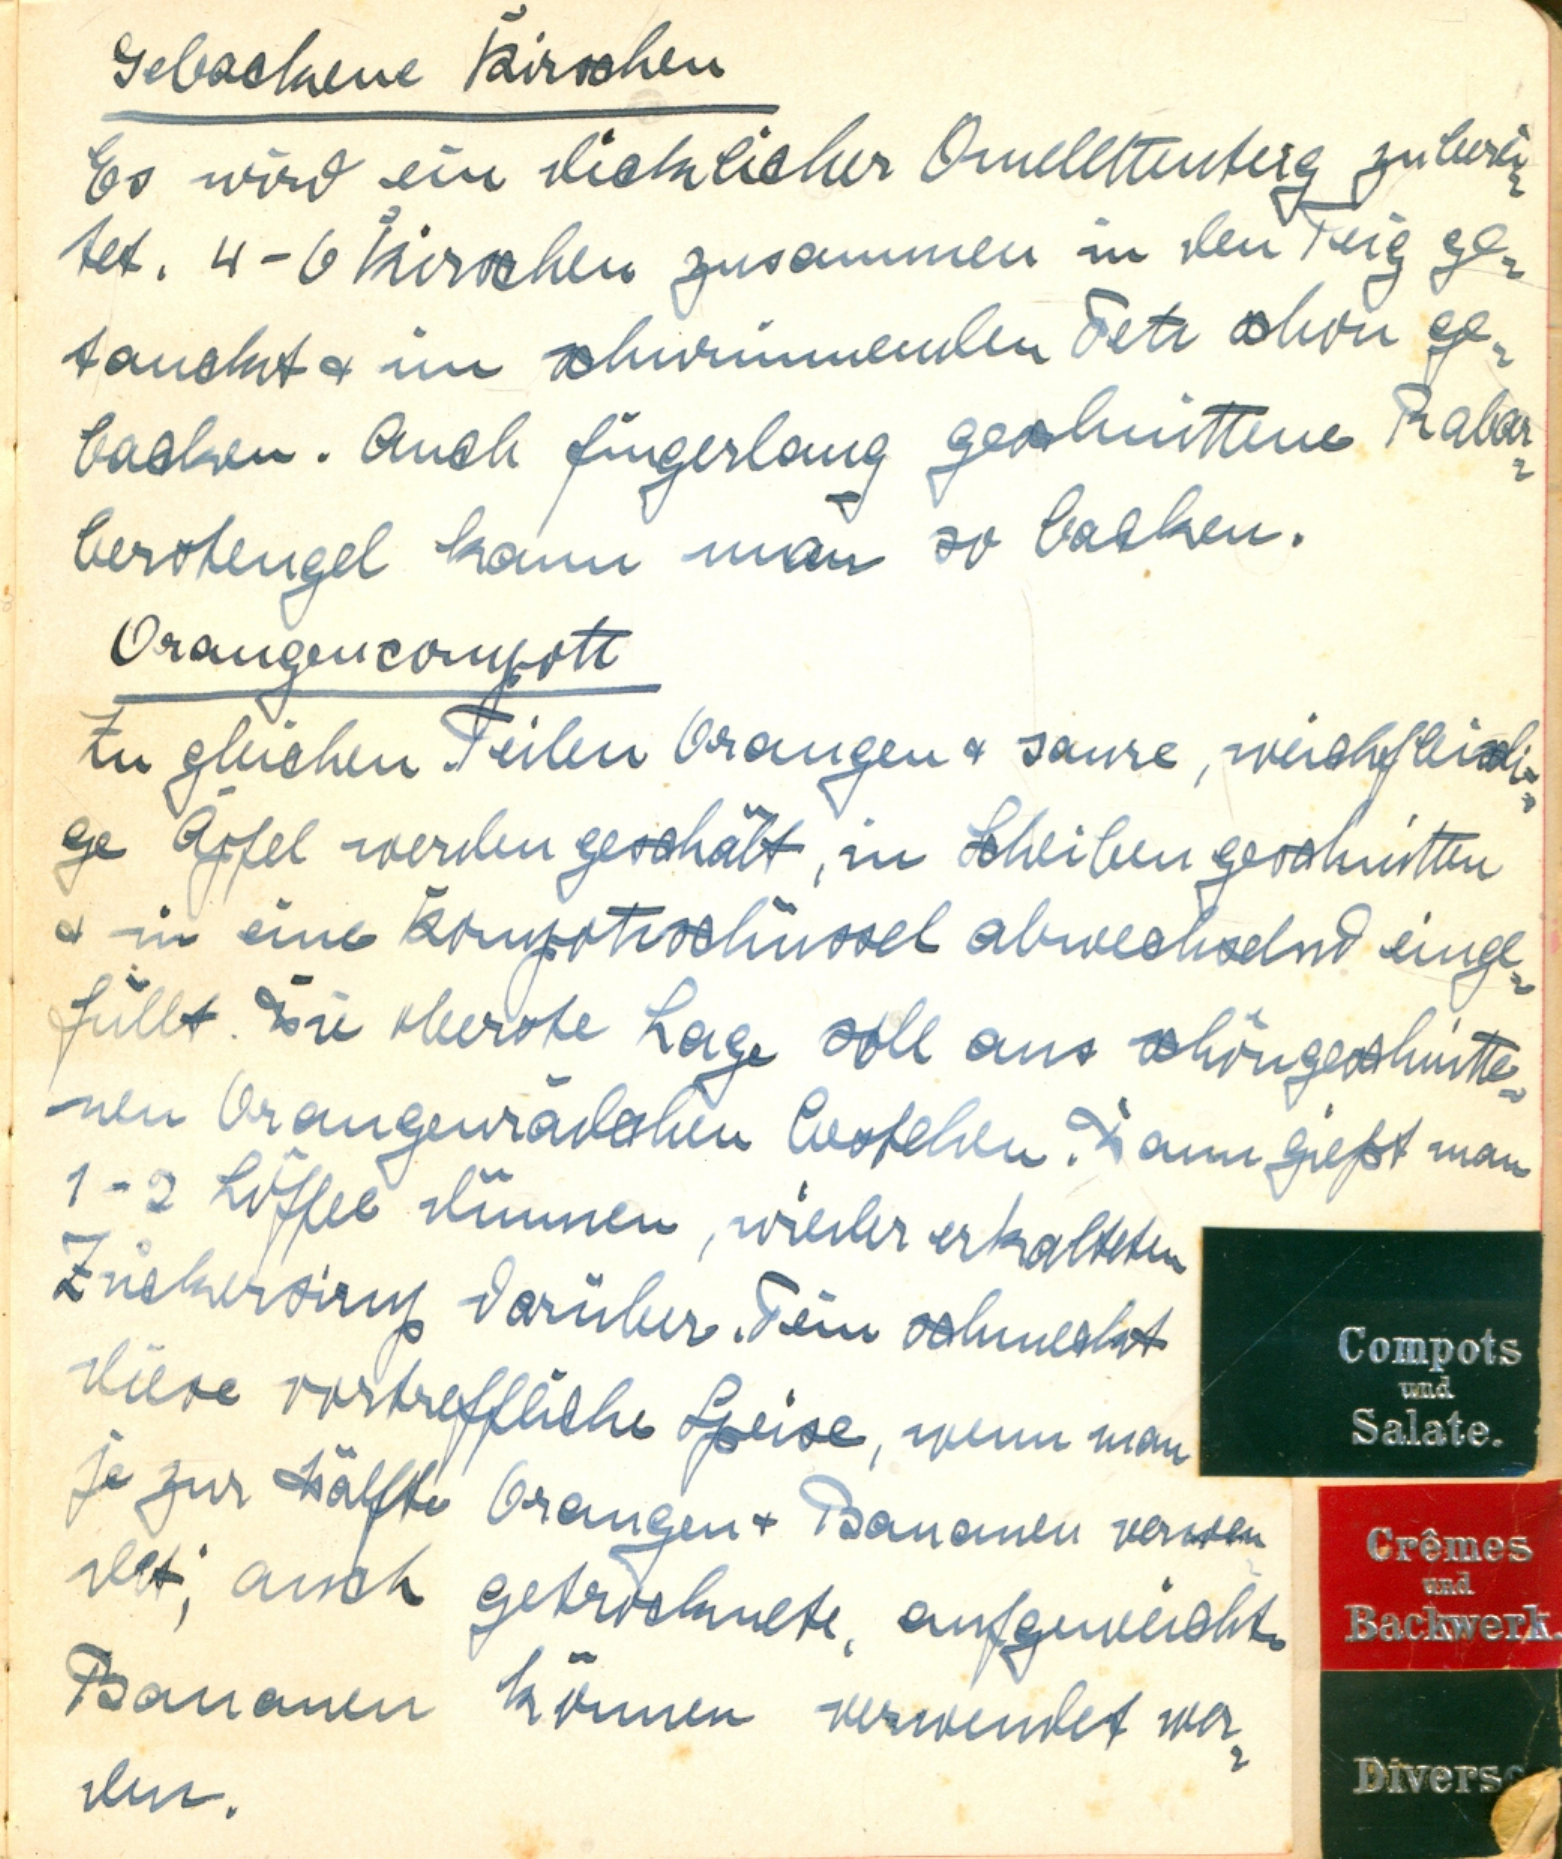 Gebackene Kirschen
Es wird ein dicklicher Omelettenteig zuberei-
tet. 4-6 Kirschen zusammen in den Teig ge-
taucht & im schwimmenden Fett schön ge-
backen. Auch fingerlang geschnittene Rabar-
berstengel kann man so backen.
Orangencompott
Zu gleichen Teilen Orangen & saure, weichfleischi-
ge Äpfel werden geschält, in Scheiben geschnitten
& in eine Kompottschüssel abwechselnd einge-
füllt. Die oberste Lage soll aus schöngeschnitte-
nen Orangenrädchen bestehen. Dann gießt man
1-2 Löffel dünnen, wieder erkalteten
Zuckersirup darüber. Fein schmeckt
diese vortreffliche Speise, wenn man
je zur Hälfte Orangen & Bananen verwen
det; auch getrocknete, aufgeweichte
Bananen können verwendet wer-
den.
Compots
und
Salate.
Crêmes
und
Backwerk.
Diverse